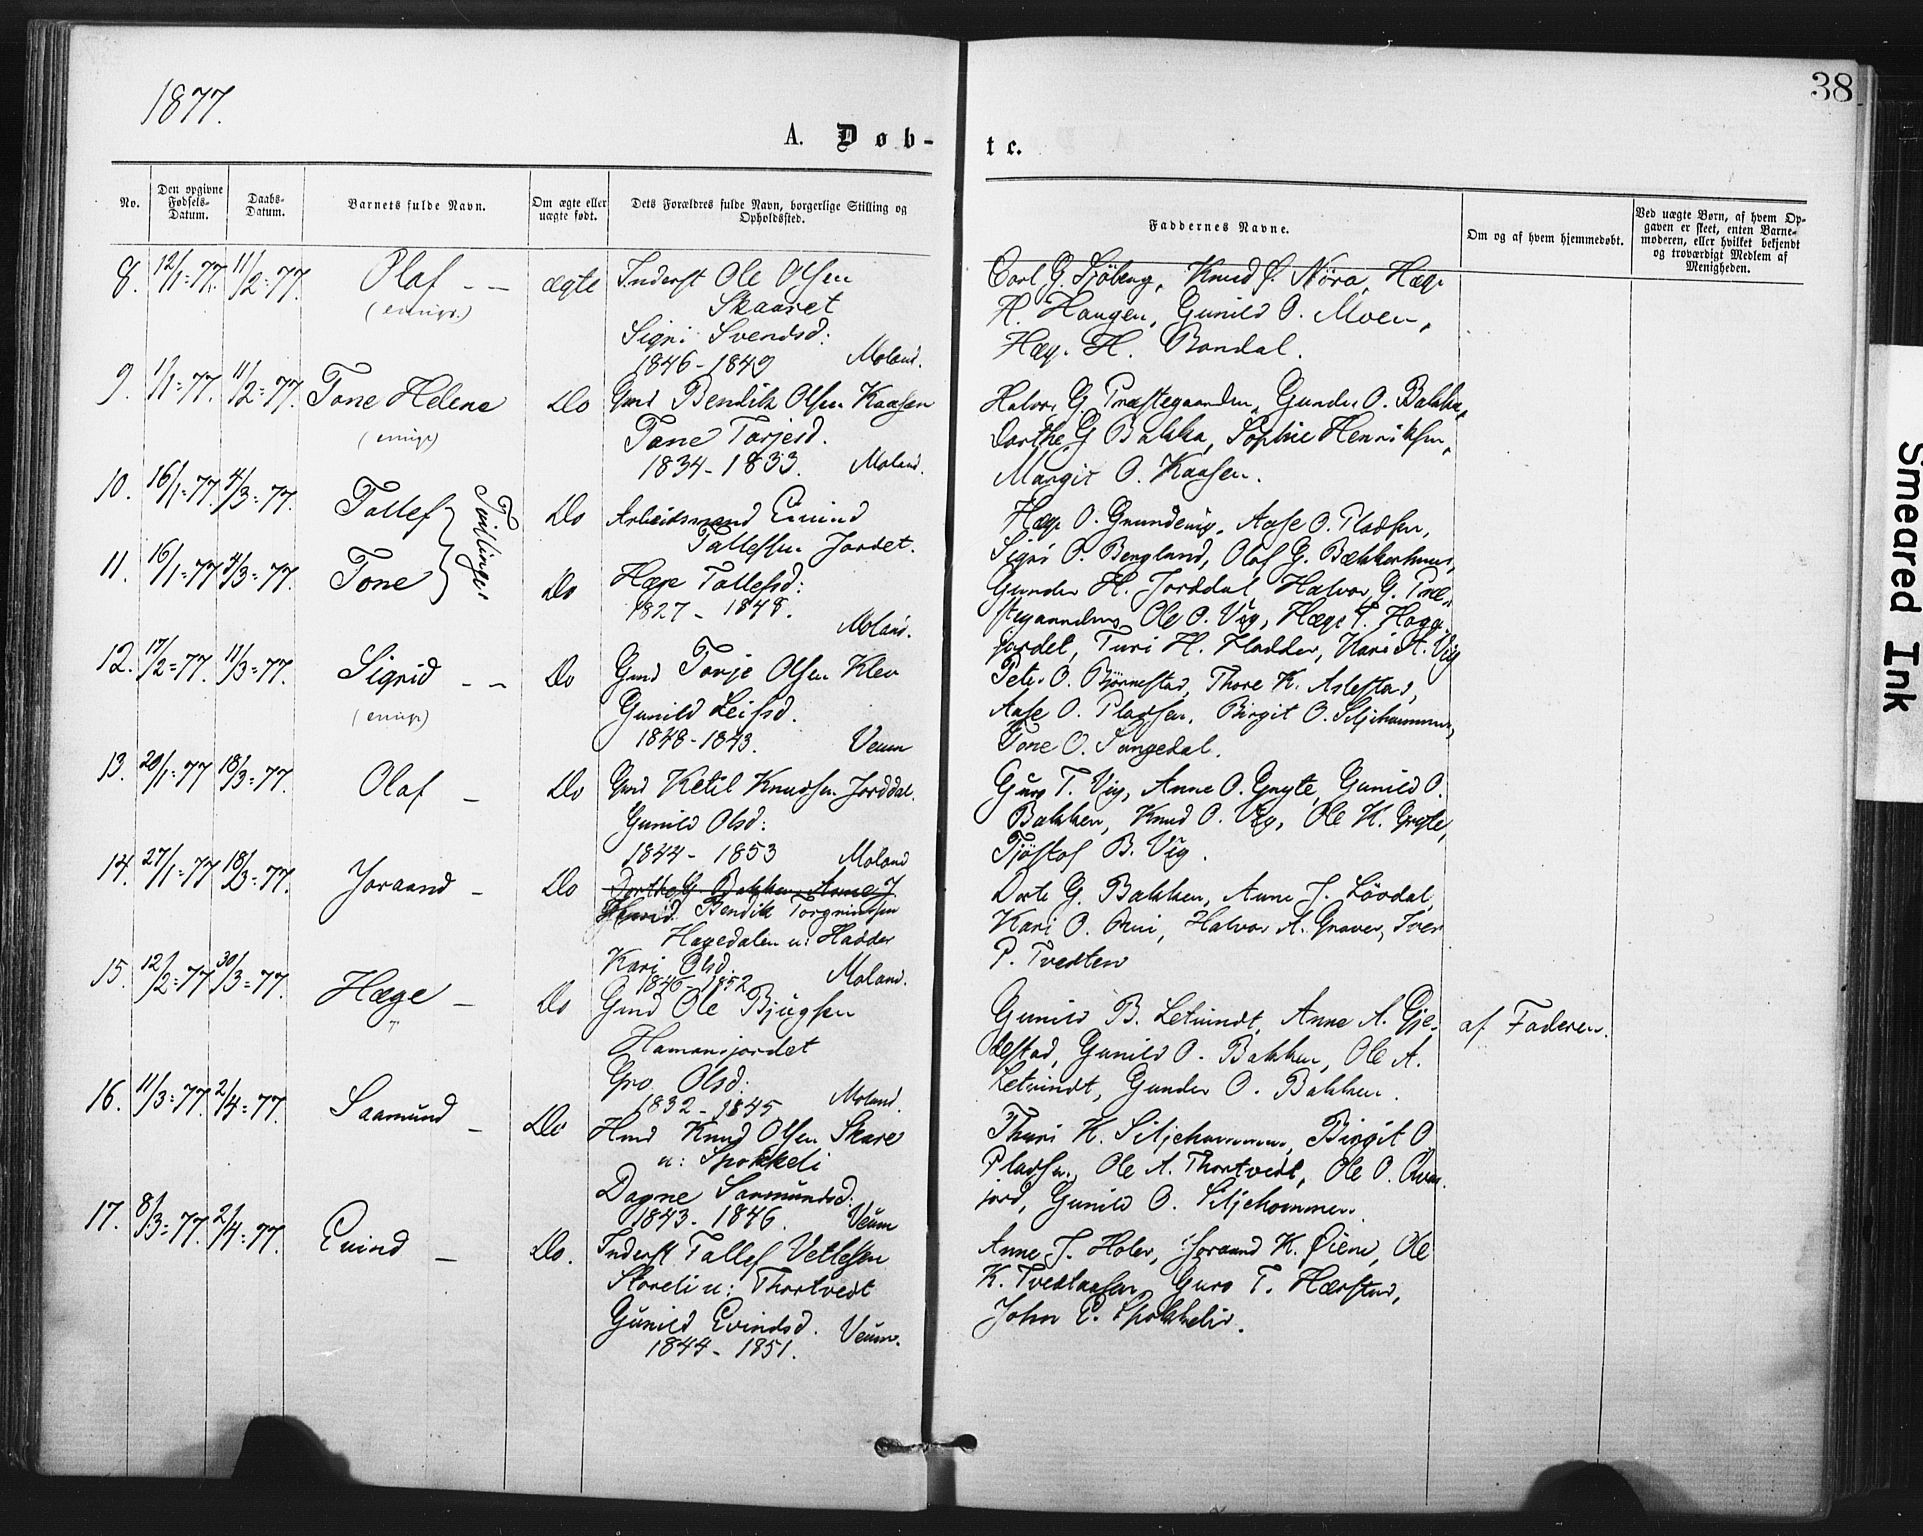 1877.
38
A. Døb-
te.
No.
Den opgivne Fødsels-Datum.
Daabs-Datum.
Barnets fulde Navn.
Om ægte eller uægte født.
Dets Forældres fulde Navn, borgerlige Stilling og Opholdssted.
Faddernes Navne.
Om og af hvem hjemmedøbt.
Ved uægte Børn, af hvem Op-
gaven er skeet, enten Barne-
moderen, eller hvilket bekjendt
og troværdigt Medlem af
Menigheden.
8. 12/1=77. 11/2=77. Olaf - - ægte Inderst Ole Olsen
(emigr.)
Skaaret
Sigri Svendsd:
1846-1849 Moland.
Carl G. Sjøberg, Knud Ø. Nøra, Hæge
H. Haugen, Gunild O. Moen,
Hæge H. Bondal.
9. 1/1=77. 11/2=77. Tone Helene Do Gmd Bendik Olsen Kaasen
(emigr)
Tone Tarjesd.
1834-1833. Moland.
Halvor G. Præstegaarden, Gunder O. Bakka,
Dorthe G Bakka, Sophie Henriksen,
Margit O. Kaasen.
10. 16/1=77. 4/3=77. Tallef Do Arbeidsmand Eivind
Tvillinger
Tallefsen Jordet.
11. 16/1=77 4/3=77. Tone Do Hæge Tallefsd:
1827-1848.
Moland.
Hæge O. Grundevig, Aase O. Pladsen,
Sigri O. Bergland, Olaf G. Bækkerhuus,
Gunder H. Jorddal Halvor G. Præ-
stegaarden, Ole O. Vig, Hæge T. Hage
jordet, Turi H. Hadder, Kari A. Vig
12. 17/2=77. 11/3=77. Sigrid - - Do Gmd Tarje Olsen Klev
(emigr)
Gunild Leifsd.
1848-1843. Veum
Peter O. Bjørnestad, Thore K. Aslestad,
Aase O. Pladsen, Birgit O. Siljehommen,
Tone O. Songedal.
13. 20/1=77 18/3=77. Olaf - Do Gmd Ketil Knudsen Jorddal.
Gunild Olsd:
1844-1853 Moland
Guro T. Vig, Anne O. Gryte, Gunild O.
Bakken, Knud O. Vig, Ole K. Gryte,
Tjøstof B. Vig.
14. 27/1=77 18/3=77. Joraand - Do Dorthe G. Bakken, Anne J
Bendik Torgrimsen
Hagedalen u: Hadder
Kari Olsd.
1846-1852 Moland.
Dorte G. Bakken, Anne J. Lövdal,
Kari O. Omi, Halvor A. Graver, Iver
P. Tvedten
15. 12/2=77 30/3=77. Hæge - Do Gmd Ole Bjugsen
Hamansjordet
Gro Olsd:
1832-1845 Moland.
Gunild B. Letvindt, Anne A. Gje-
destad, Gunild O. Bakken, Ole A.
Letvindt, Gunder O. Bakken.
af Faderen.
16. 11/3=77. 2/4=77. Saamund - Do Hmd Knud Olsen Skare
u: Spokkeli
Dagne Saamundsd:
1843-1846. Veum
Thuri K. Siljehommen, Birgit O
Pladsen, Ole A. Thortvedt, Ole O. Aven-
jord, Gunild O. Siljehommen.
17. 8/3=77. 2/4=77. Evind - Do. Inderst Tallef Vetlesen
Storeli u: Thortvedt
Gunild Evindsd.
1844-1851. Veum.
Anne J. Holer, Joraand K. Øiene, Ole
K. Tvedtaasen, Guro T. Hærstad,
John E. Spokkelid.
Smeared Ink